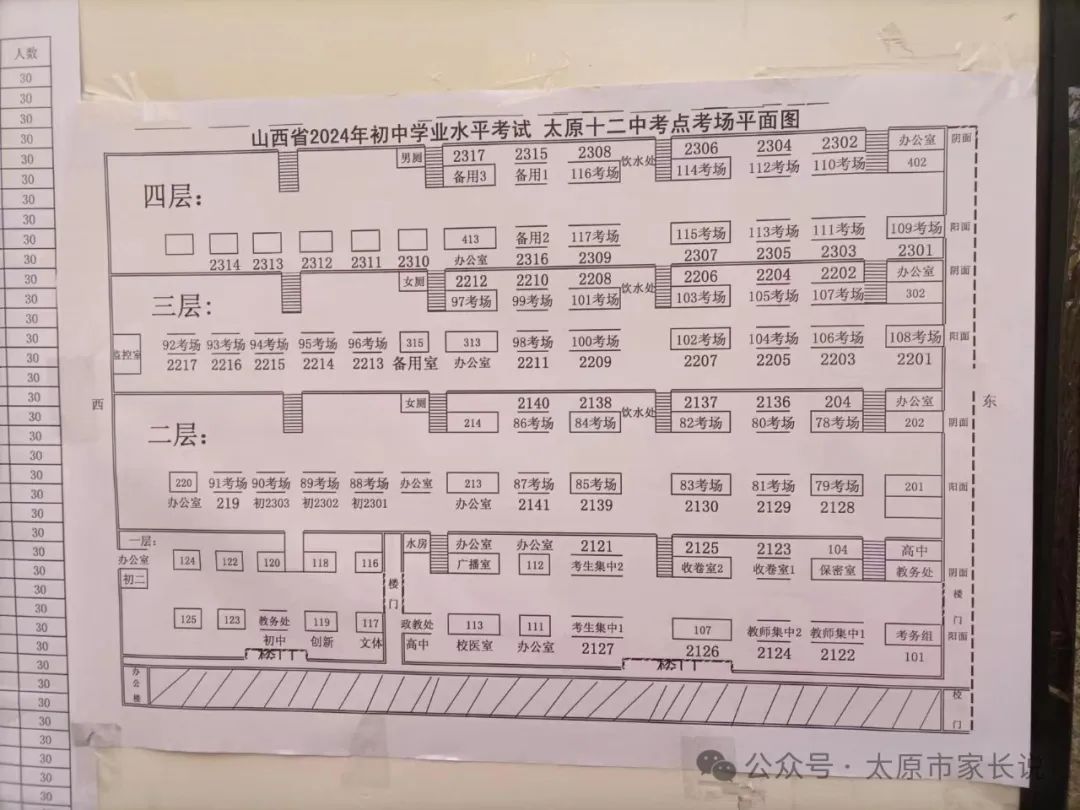 人数
30
30
30
30
30
30
30
30
30
30
30
30
30
30
30
30
30
30
30
30
30
30
30
30
30
30
30
30
30
30
30
30
30
30
30
30
30
山西省2024年初中学业水平考试 太原十二中考点考场平面图
男厕 2317 2315 2308 饮水处 2306 2304 2302 办公室 阴面
四层: 备用3 备用1 116考场 114考场 112考场 110考场 402
413 备用2 117考场 115考场 113考场 111考场 109考场 阳面
2314 2313 2312 2311 2310 办公室 2316 2309 2307 2305 2303 2301
女厕 2212 2210 2208 饮水处 2206 2204 2202 办公室 阴面
三层: 97考场 99考场 101考场 103考场 105考场 107考场 302
监控室 92考场 93考场 94考场 95考场 96考场 315 313 98考场 100考场 102考场 104考场 106考场 108考场 阳面
2217 2216 2215 2214 2213 备用室 办公室 2211 2209 2207 2205 2203 2201
西 东
女厕 2140 2138 饮水处 2137 2136 204 办公室
二层: 214 86考场 84考场 82考场 80考场 78考场 202 阴面
220 91考场 90考场 89考场 88考场 办公室 213 87考场 85考场 83考场 81考场 79考场 201 阳面
办公室 219 初2303 初2302 初2301 办公室 2141 2139 2130 2129 2128
一层: 水房 办公室 办公室 2121 2125 2123 104 高中
办公室 124 122 120 118 116 广播室 112 考生集中2 收卷室2 收卷室1 保密室 教务处 阴面
初二 楼门 楼门
125 123 教务处 119 117 政教处 113 111 考生集中1 107 教师集中2 教师集中1 考务组 阳面
初中 创新 文体 高中 校医室 办公室 2127 2126 2124 2122 101
楼门 楼门
办公楼 校门
公众号 · 太原市家长说